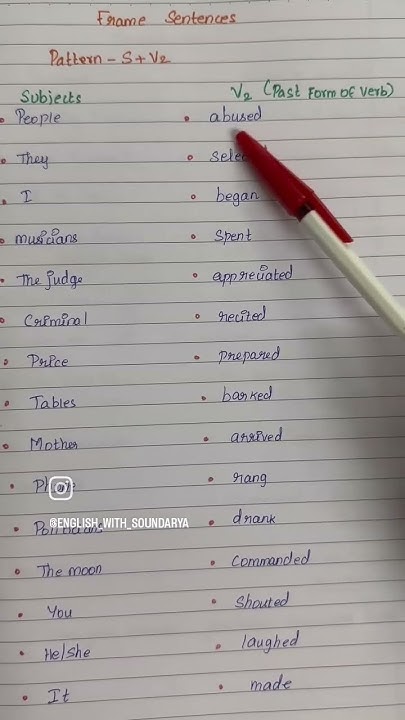 Frame Sentences
Pattern - S + V2
Subjects V2 (Past Form of Verb)
People abused
They
I began
musicians spent
The judge appreciated
Criminal recited
Price prepared
Tables barked
Mother arrived
rang
@ENGLISH_WITH_SOUNDARYA
drank
The moon Commanded
You Shouted
He/she laughed
It made